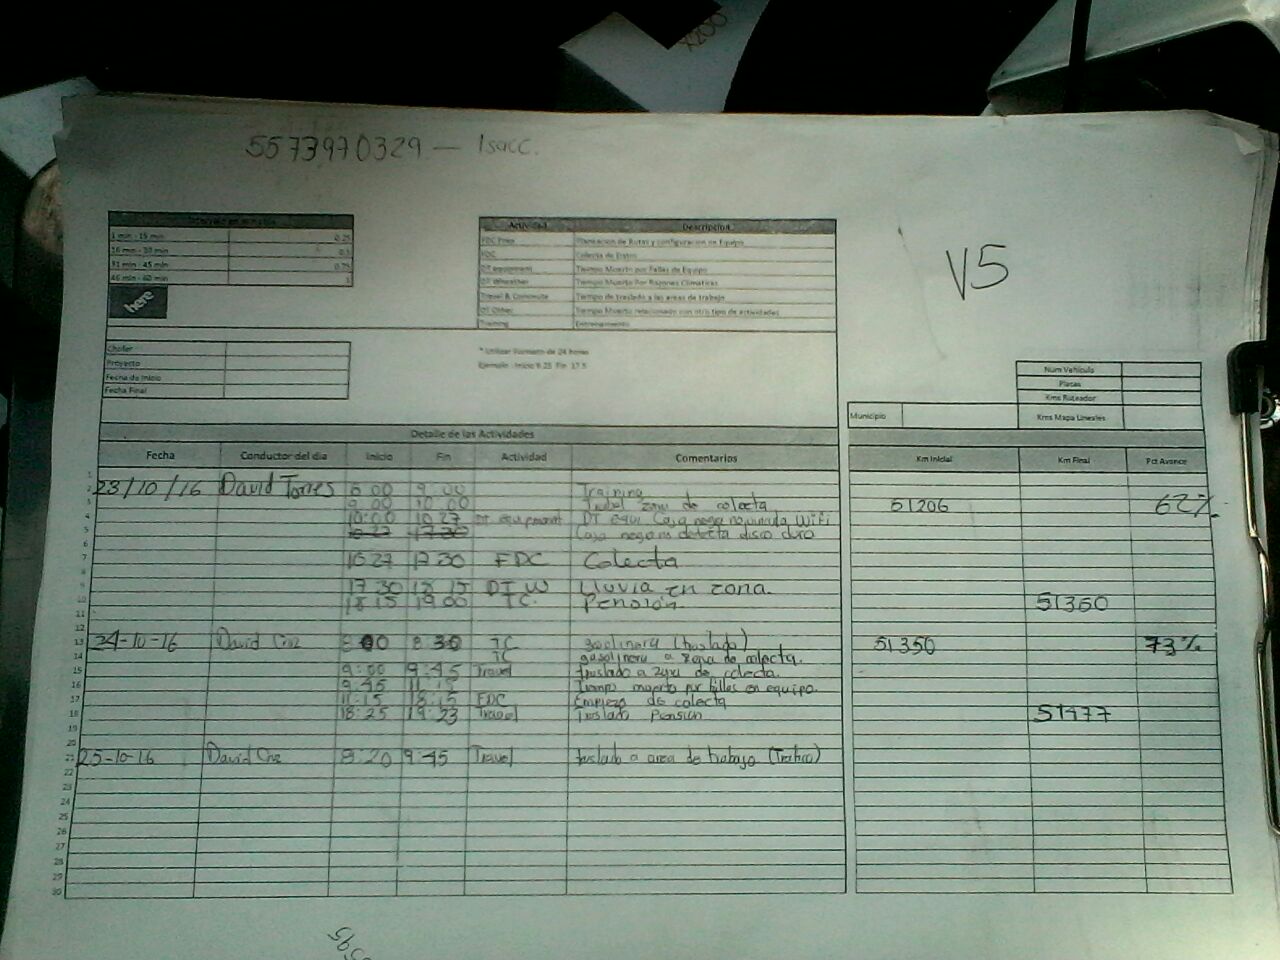 X200
5573970329 — Isacc.
1 min - 15 min 0.25
16 min - 30 min 0.5
31 min - 45 min 0.75
46 min - 60 min 1
here
Actividad Descripcion
FDC Prep Planeacion de Rutas y configuracion de Equipo
FDC Colecta de Datos
DT equipment Tiempo Muerto por Fallas de Equipo
DT Wheather Tiempo Muerto Por Razones Climaticas
Travel & Commute Tiempo de traslado a las areas de trabajo
DT Other Tiempo Muerto relacionado con otro tipo de actividades
Training Entrenamiento
V5
Chofer
Proyecto
Fecha de Inicio
Fecha Final
* Utilizar Formato de 24 horas
Ejemplo : Inicio 9.25 Fin 17.5
Num Vehiculo
Placas
Kms Ruteador
Municipio Kms Mapa Lineales
Detalle de las Actividades
Fecha Conductor del dia Inicio Fin Actividad Comentarios Km Inicial Km Final Pct Avance
1
2 23/10/16 David Torres 9:00 Training
3 10:00 zona de colecta 51206 62%
4 10:00 10 27 DT equipment DT equi Caja negra no vincula WiFi
5 Caja negra no detecta disco duro
7 10 27 17 30 FDC Colecta
9 17 30 18 15 DT W Lluvia en zona.
10 18 15 19 00 TC. Pensión. 51360
11
12
13 24-10-16 David Cruz 8 00 8 30 TC gasolinera (traslado) 51350 73%
14 TC gasolinera a zona de colecta.
15 9:00 9:45 Travel traslado a zona de colecta.
16 9:45 11:15 Tiempo muerto por fallas en equipo.
17 11:15 18:15 FDC Empieza de colecta
18 18:25 19:23 Travel Traslado Pension 51477
19
20
21 25-10-16 David Cruz 8:20 9:45 Travel traslado a area de trabajo (Trafico)
22
23
24
25
26
27
28
29
30